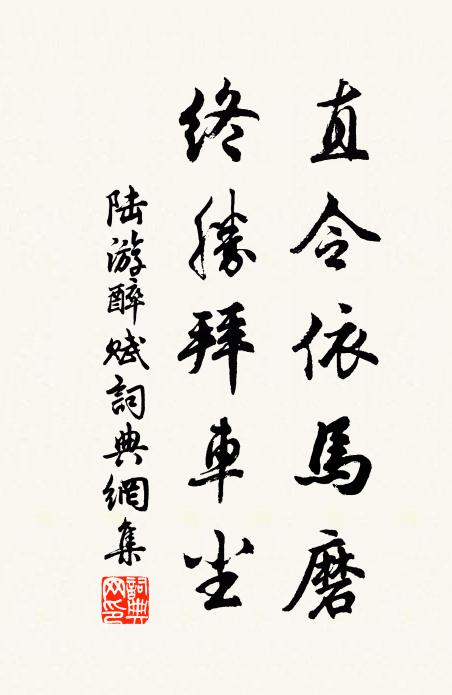 直令依馬磨
終勝拜車尘
陆游醉赋詞典網集
詞典网印